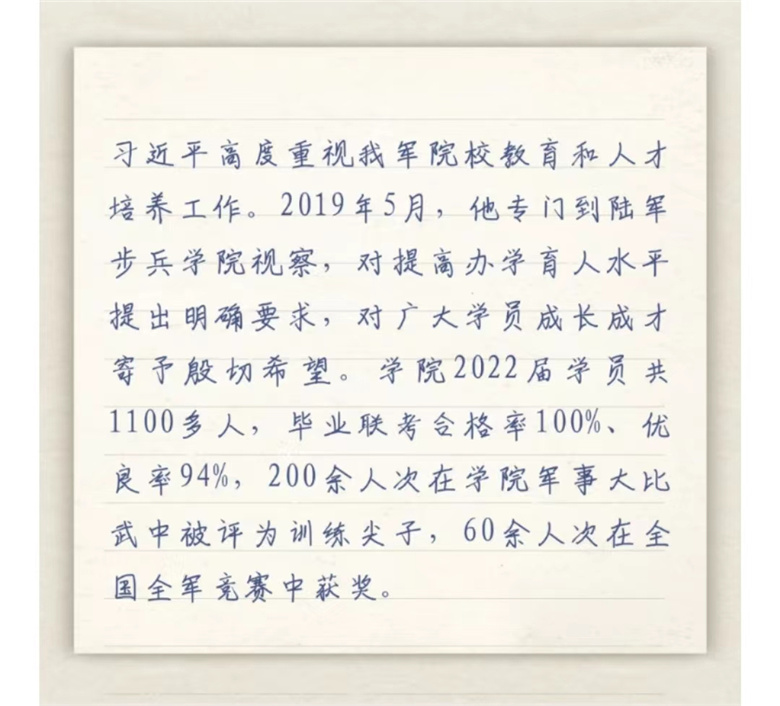 习近平高度重视我军院校教育和人才
培养工作。2019年5月，他专门到陆军
步兵学院视察，对提高办学育人水平
提出明确要求，对广大学员成长成才
寄予殷切希望。学院2022届学员共
1100多人，毕业联考合格率100%、优
良率94%，200余人次在学院军事大比
武中被评为训练尖子，60余人次在全
国全军竞赛中获奖。